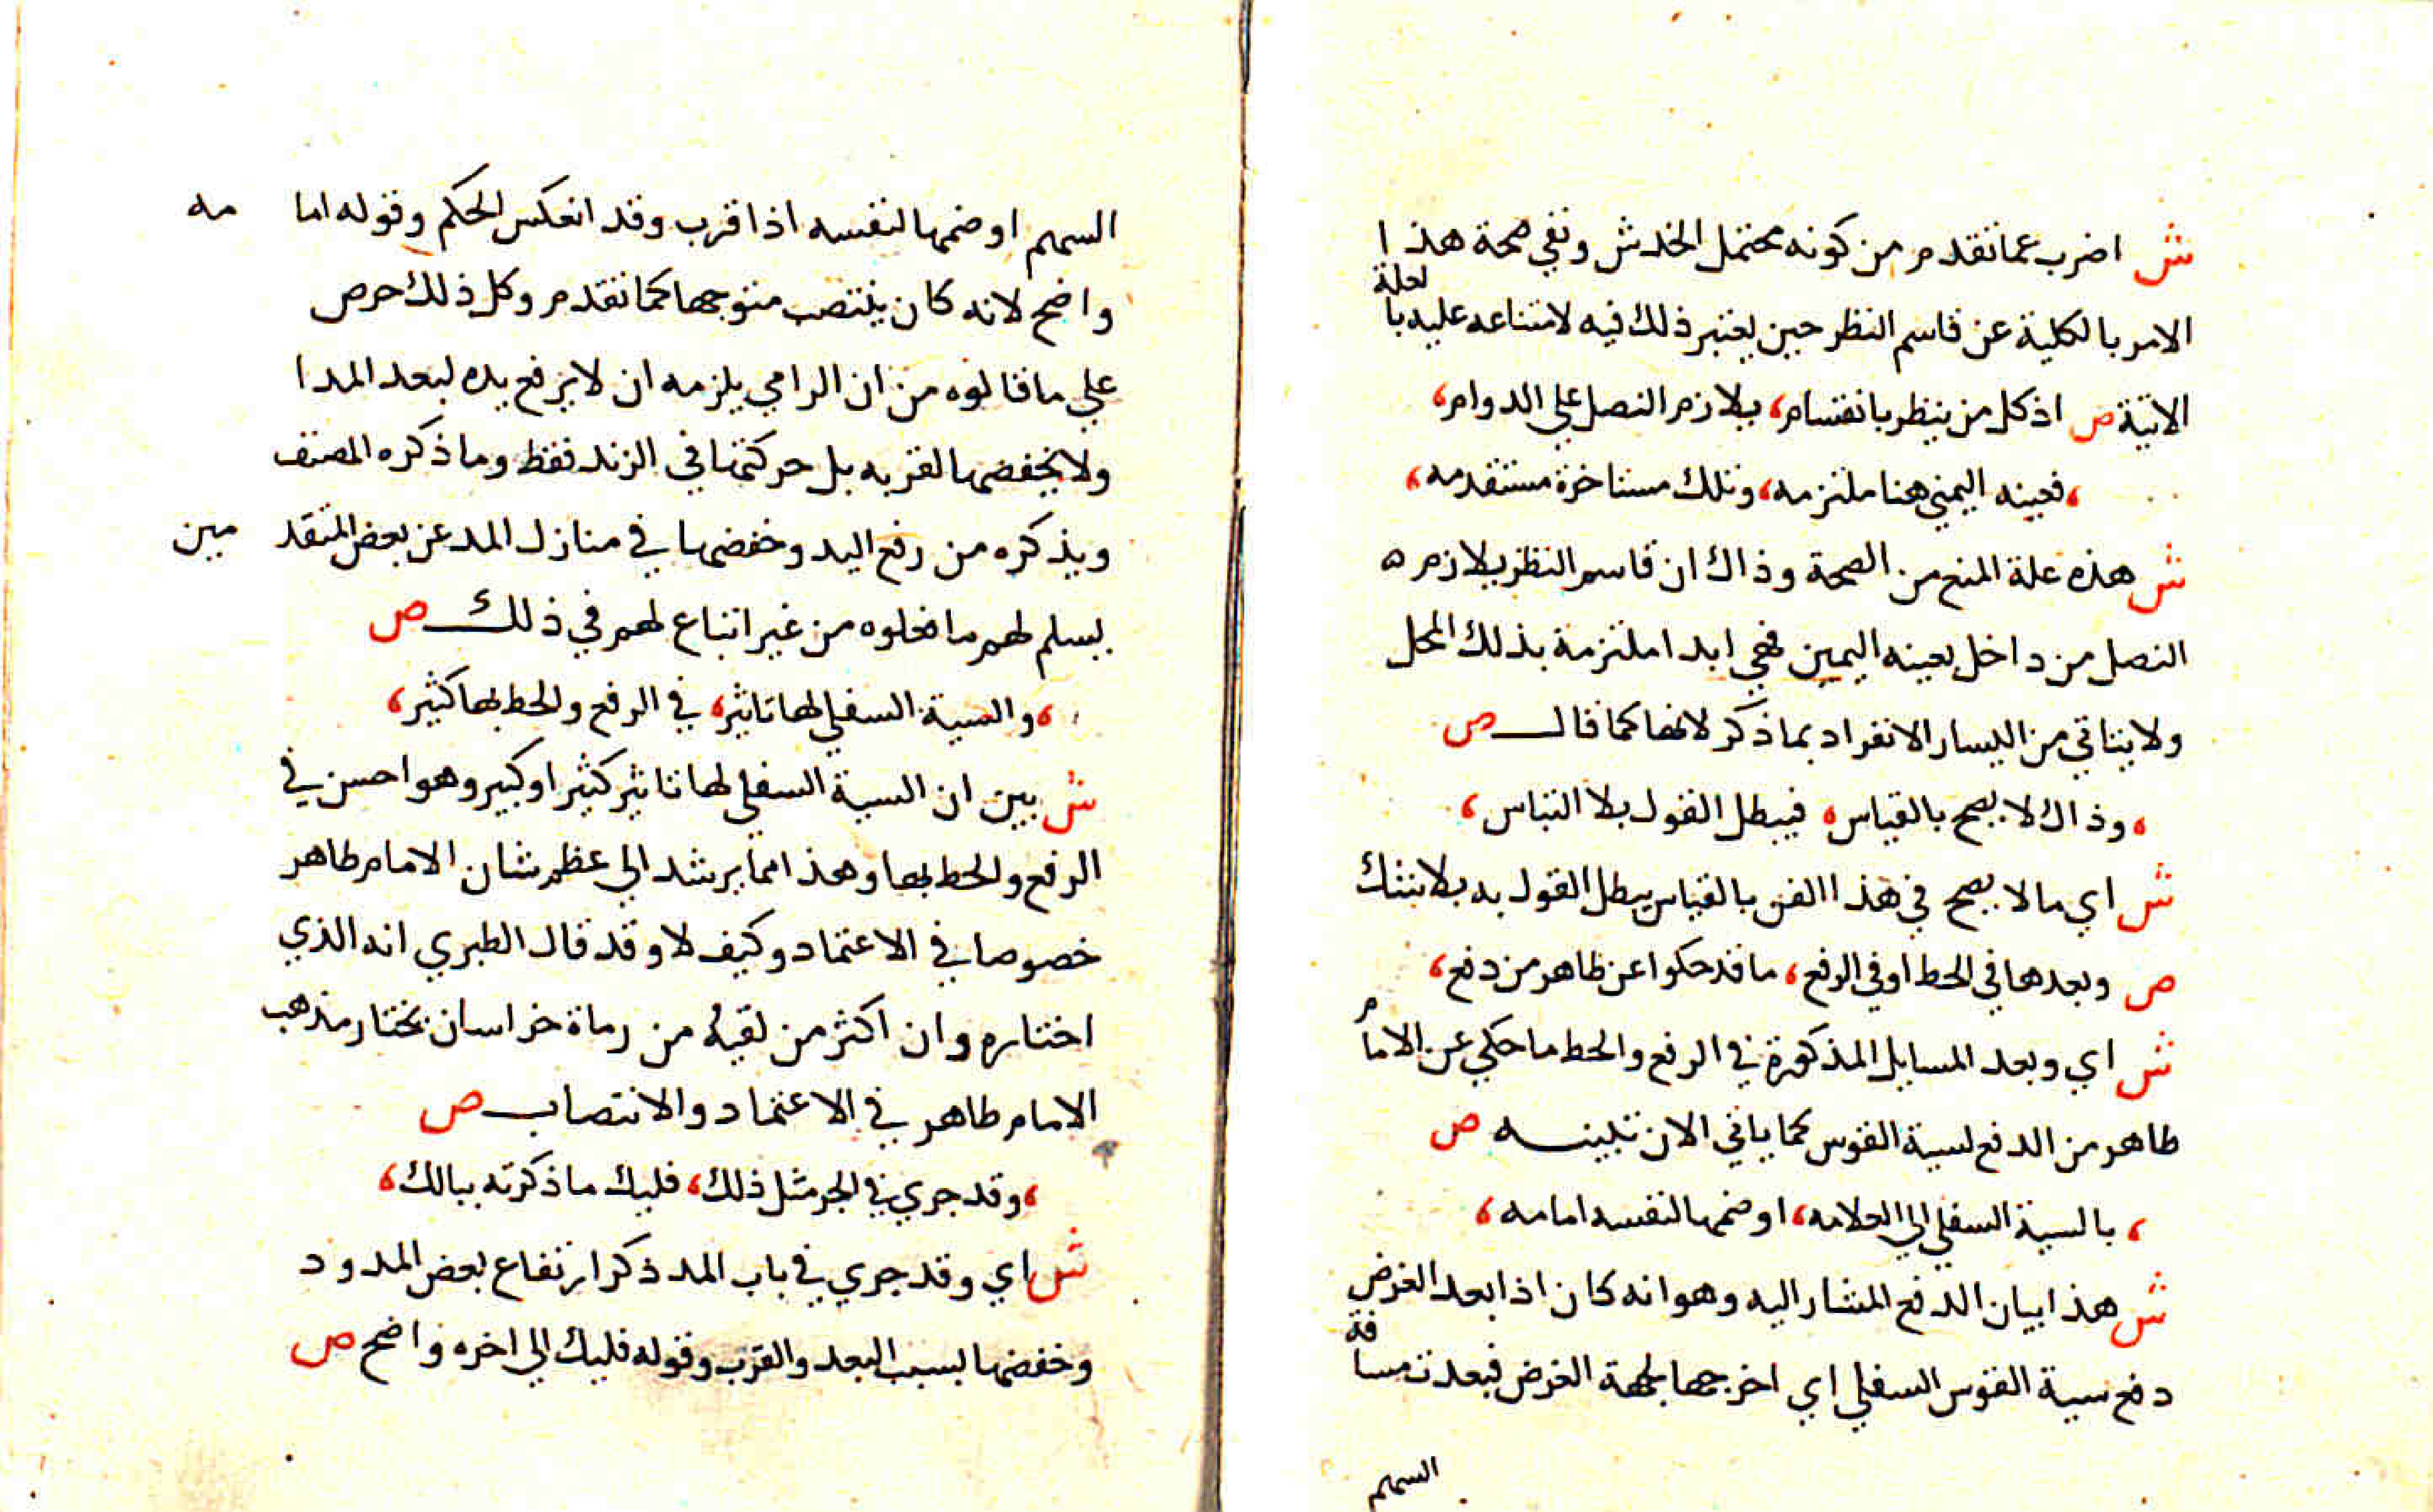 ش اضرب عما تقدم من كونه محتمل الخدش ونفي صحة هذا
الامر بالكلية عن قاسم النظر حين يعتبر ذلك فيه لامتناعه عليه بالعلة
الاتية ص اذ كل من ينظر بانقسام، يلازم النصل علي الدوام،
، فعينه اليمني هنا ملتزمه، وتلك مستاخرة مستقدمه،
ش هذه علة المنع من الصحة وذاك ان قاسم النظر يلازم ه
النصل من داخل بعينه اليمين فهي ابدا ملتزمة بذلك المحل
ولا يتاتي من اليسار الانفراد بما ذكر لانها كما قال ص
، وذاك لا يصح بالقياس، فيبطل القول بلا التباس،
ش اي ما لا يصح في هذا الفن بالقياس يبطل القول به بلا شك
ص وبعدها في الحط او في الرفع، ما قد حكوا عن طاهر من دفع،
ش اي وبعد المسايل المذكورة في الرفع والحط ما حكي عن الامام
طاهر من الدفع لسية القوس كما ياتي الان تبيينه ص
، بالسية السفلي الي العلامه، او ضمها لنفسه امامه،
ش هذا بيان الدفع المشار اليه وهو انه كان اذا بعد الغرض
دفع سية القوس السفلي اي اخرجها لجهة الغرض فبعدت مسافة
السهم
السهم او ضمها لنفسه اذا قرب وقد انعكس الحكم وقوله امامه
واضح لانه كان ينتصب متوجها كما تقدم وكل ذلك حرص
علي ما قالوه من ان الرامي يلزمه ان لا يرفع يده لبعد المدا
ولا يخفضها لقربه بل حركتها في الزند فقط وما ذكره المصنف
ويذكره من رفع اليد وخفضها في منازل المد عن بعض المتقد مين
يسلم لهم ما فعلوه من غير اتباع لهم في ذلك ص
، والسية السفلي لها تاثير، في الرفع والحط بها كثير،
ش بين ان السية السفلي لها تاثير كثير او كبير وهو احسن في
الرفع والحط بها وهذا مما يرشد الي عظم شان الامام طاهر
خصوصا في الاعتماد وكيف لا وقد قال الطبري انه الذي
اختاره وان اكثر من لقيه من رماة خراسان يختار مذهب
الامام طاهر في الاعتماد والانتصاب ص
، وقد جري في الجر مثل ذلك، فليك ما ذكرته ببالك،
ش اي وقد جري في باب المد ذكر ارتفاع بعض المدود
وخفضها بسبب البعد والقرب وقوله فليك الي اخره واضح ص